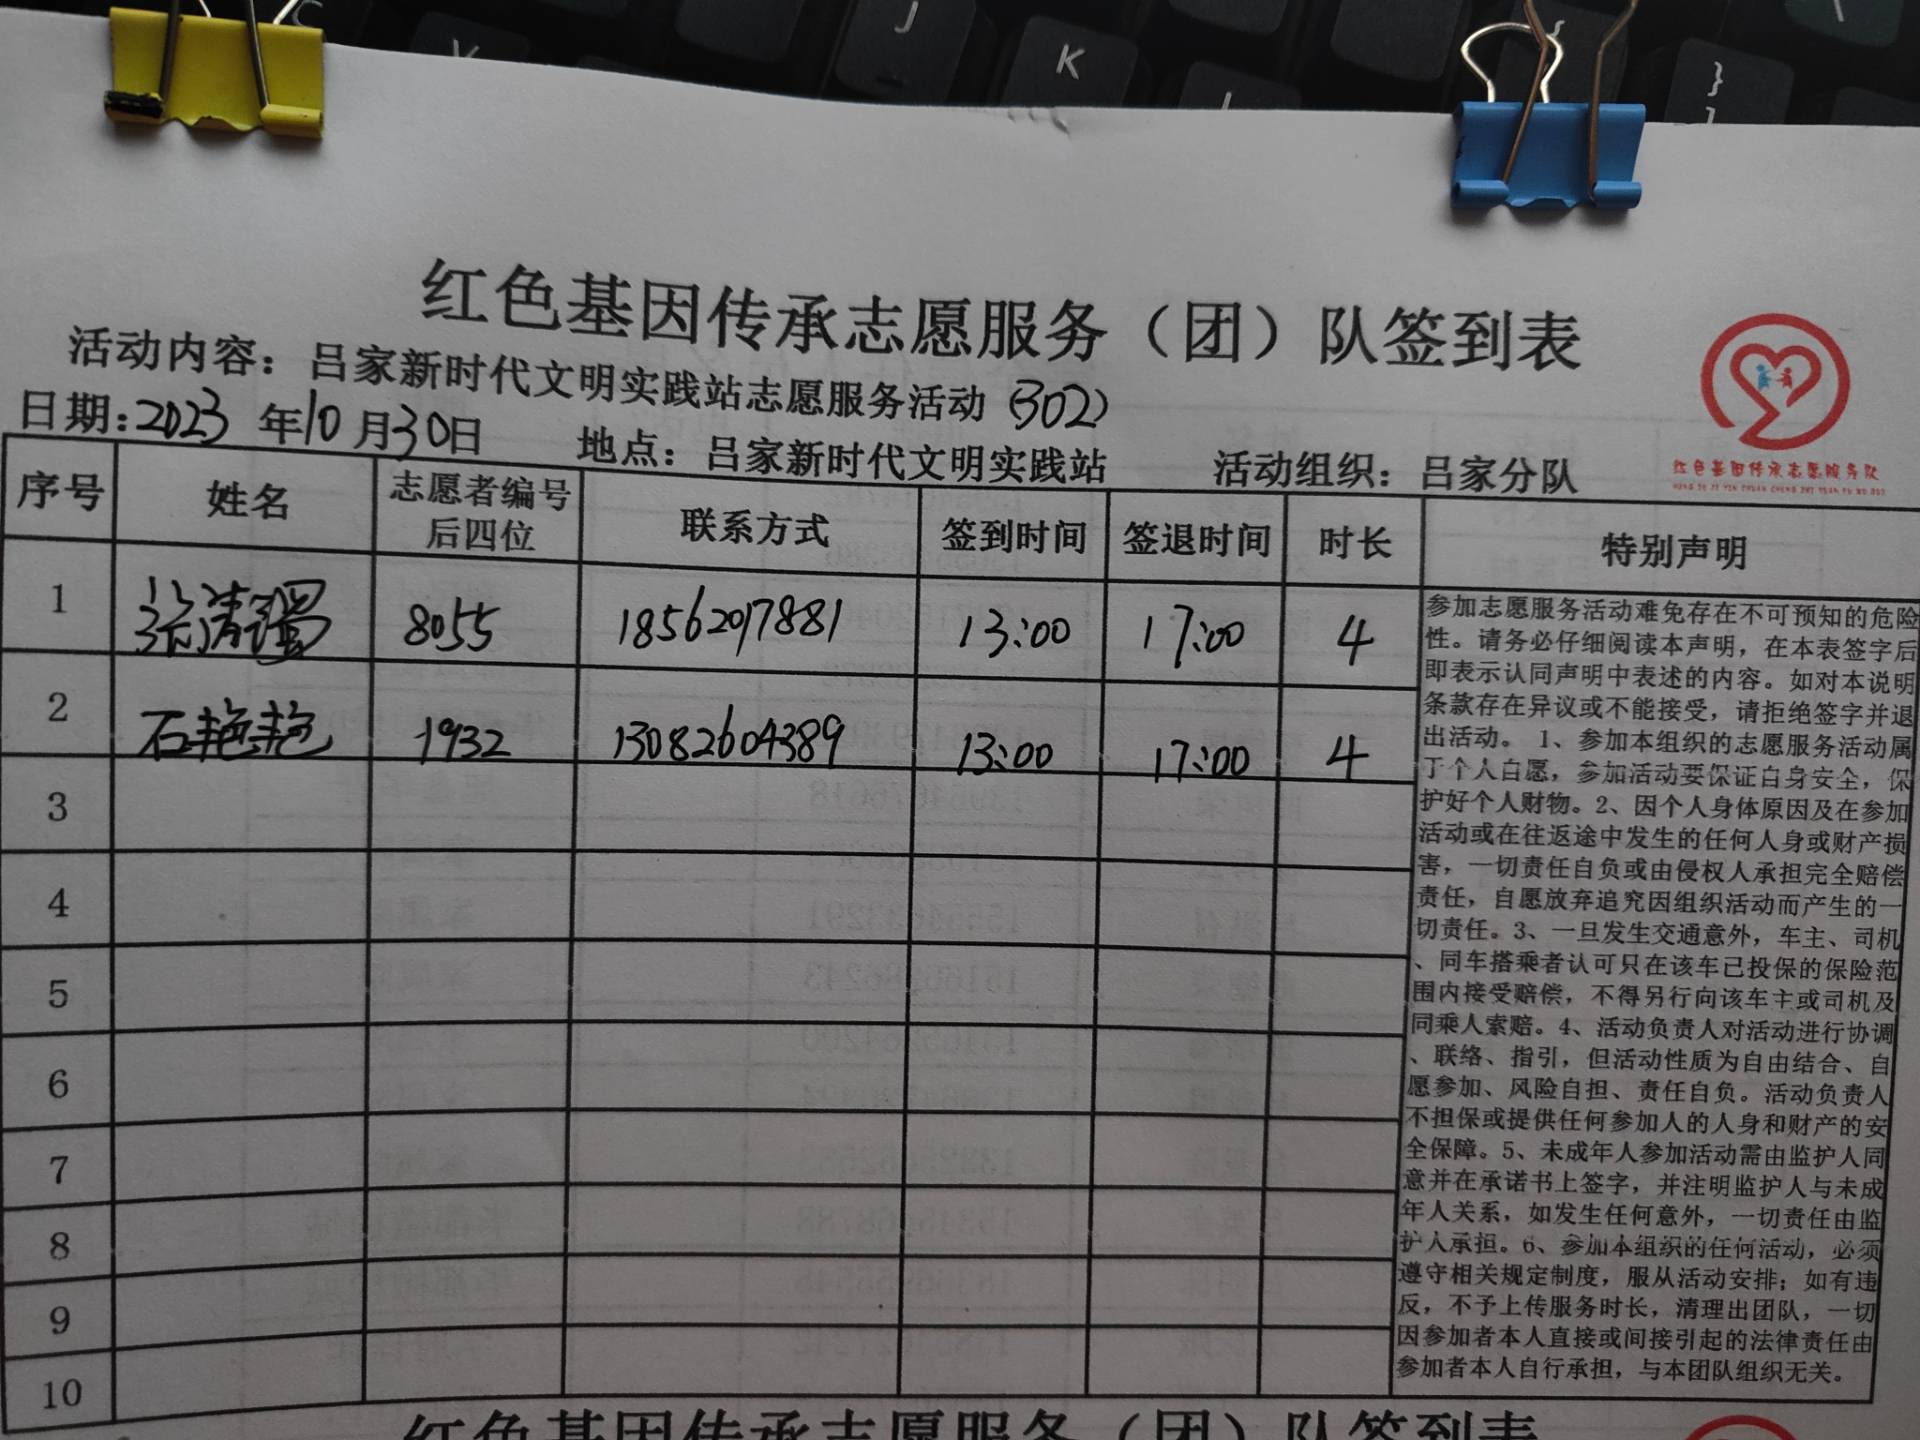 J
K
L
}
]
红色基因传承志愿服务（团）队签到表
活动内容：吕家新时代文明实践站志愿服务活动（302）
日期：2023 年10 月30日 地点：吕家新时代文明实践站 活动组织：吕家分队
红色基因传承志愿服务队
HONG SE JI YIN CHUAN CHENG ZHI YUAN FU WU DUI
序号 姓名 志愿者编号后四位 联系方式 签到时间 签退时间 时长 特别声明
1 张清 8055 18562017881 13:00 17:00 4
2 石艳艳 1932 13082604389 13:00 17:00 4
3
4
5
6
7
8
9
10
参加志愿服务活动难免存在不可预知的危险
性。请务必仔细阅读本声明，在本表签字后
即表示认同声明中表述的内容。如对本说明
条款存在异议或不能接受，请拒绝签字并退
出活动。 1、参加本组织的志愿服务活动属
于个人自愿，参加活动要保证自身安全，保
护好个人财物。2、因个人身体原因及在参加
活动或在往返途中发生的任何人身或财产损
害，一切责任自负或由侵权人承担完全赔偿
责任，自愿放弃追究因组织活动而产生的一
切责任。3、一旦发生交通意外，车主、司机
、同车搭乘者认可只在该车已投保的保险范
围内接受赔偿，不得另行向该车主或司机及
同乘人索赔。4、活动负责人对活动进行协调
、联络、指引，但活动性质为自由结合、自
愿参加、风险自担、责任自负。活动负责人
不担保或提供任何参加人的人身和财产的安
全保障。5、未成年人参加活动需由监护人同
意并在承诺书上签字，并注明监护人与未成
年人关系，如发生任何意外，一切责任由监
护人承担。6、参加本组织的任何活动，必须
遵守相关规定制度，服从活动安排；如有违
反，不予上传服务时长，清理出团队，一切
因参加者本人直接或间接引起的法律责任由
参加者本人自行承担，与本团队组织无关。
红色基因传承志愿服务（团）队签到表